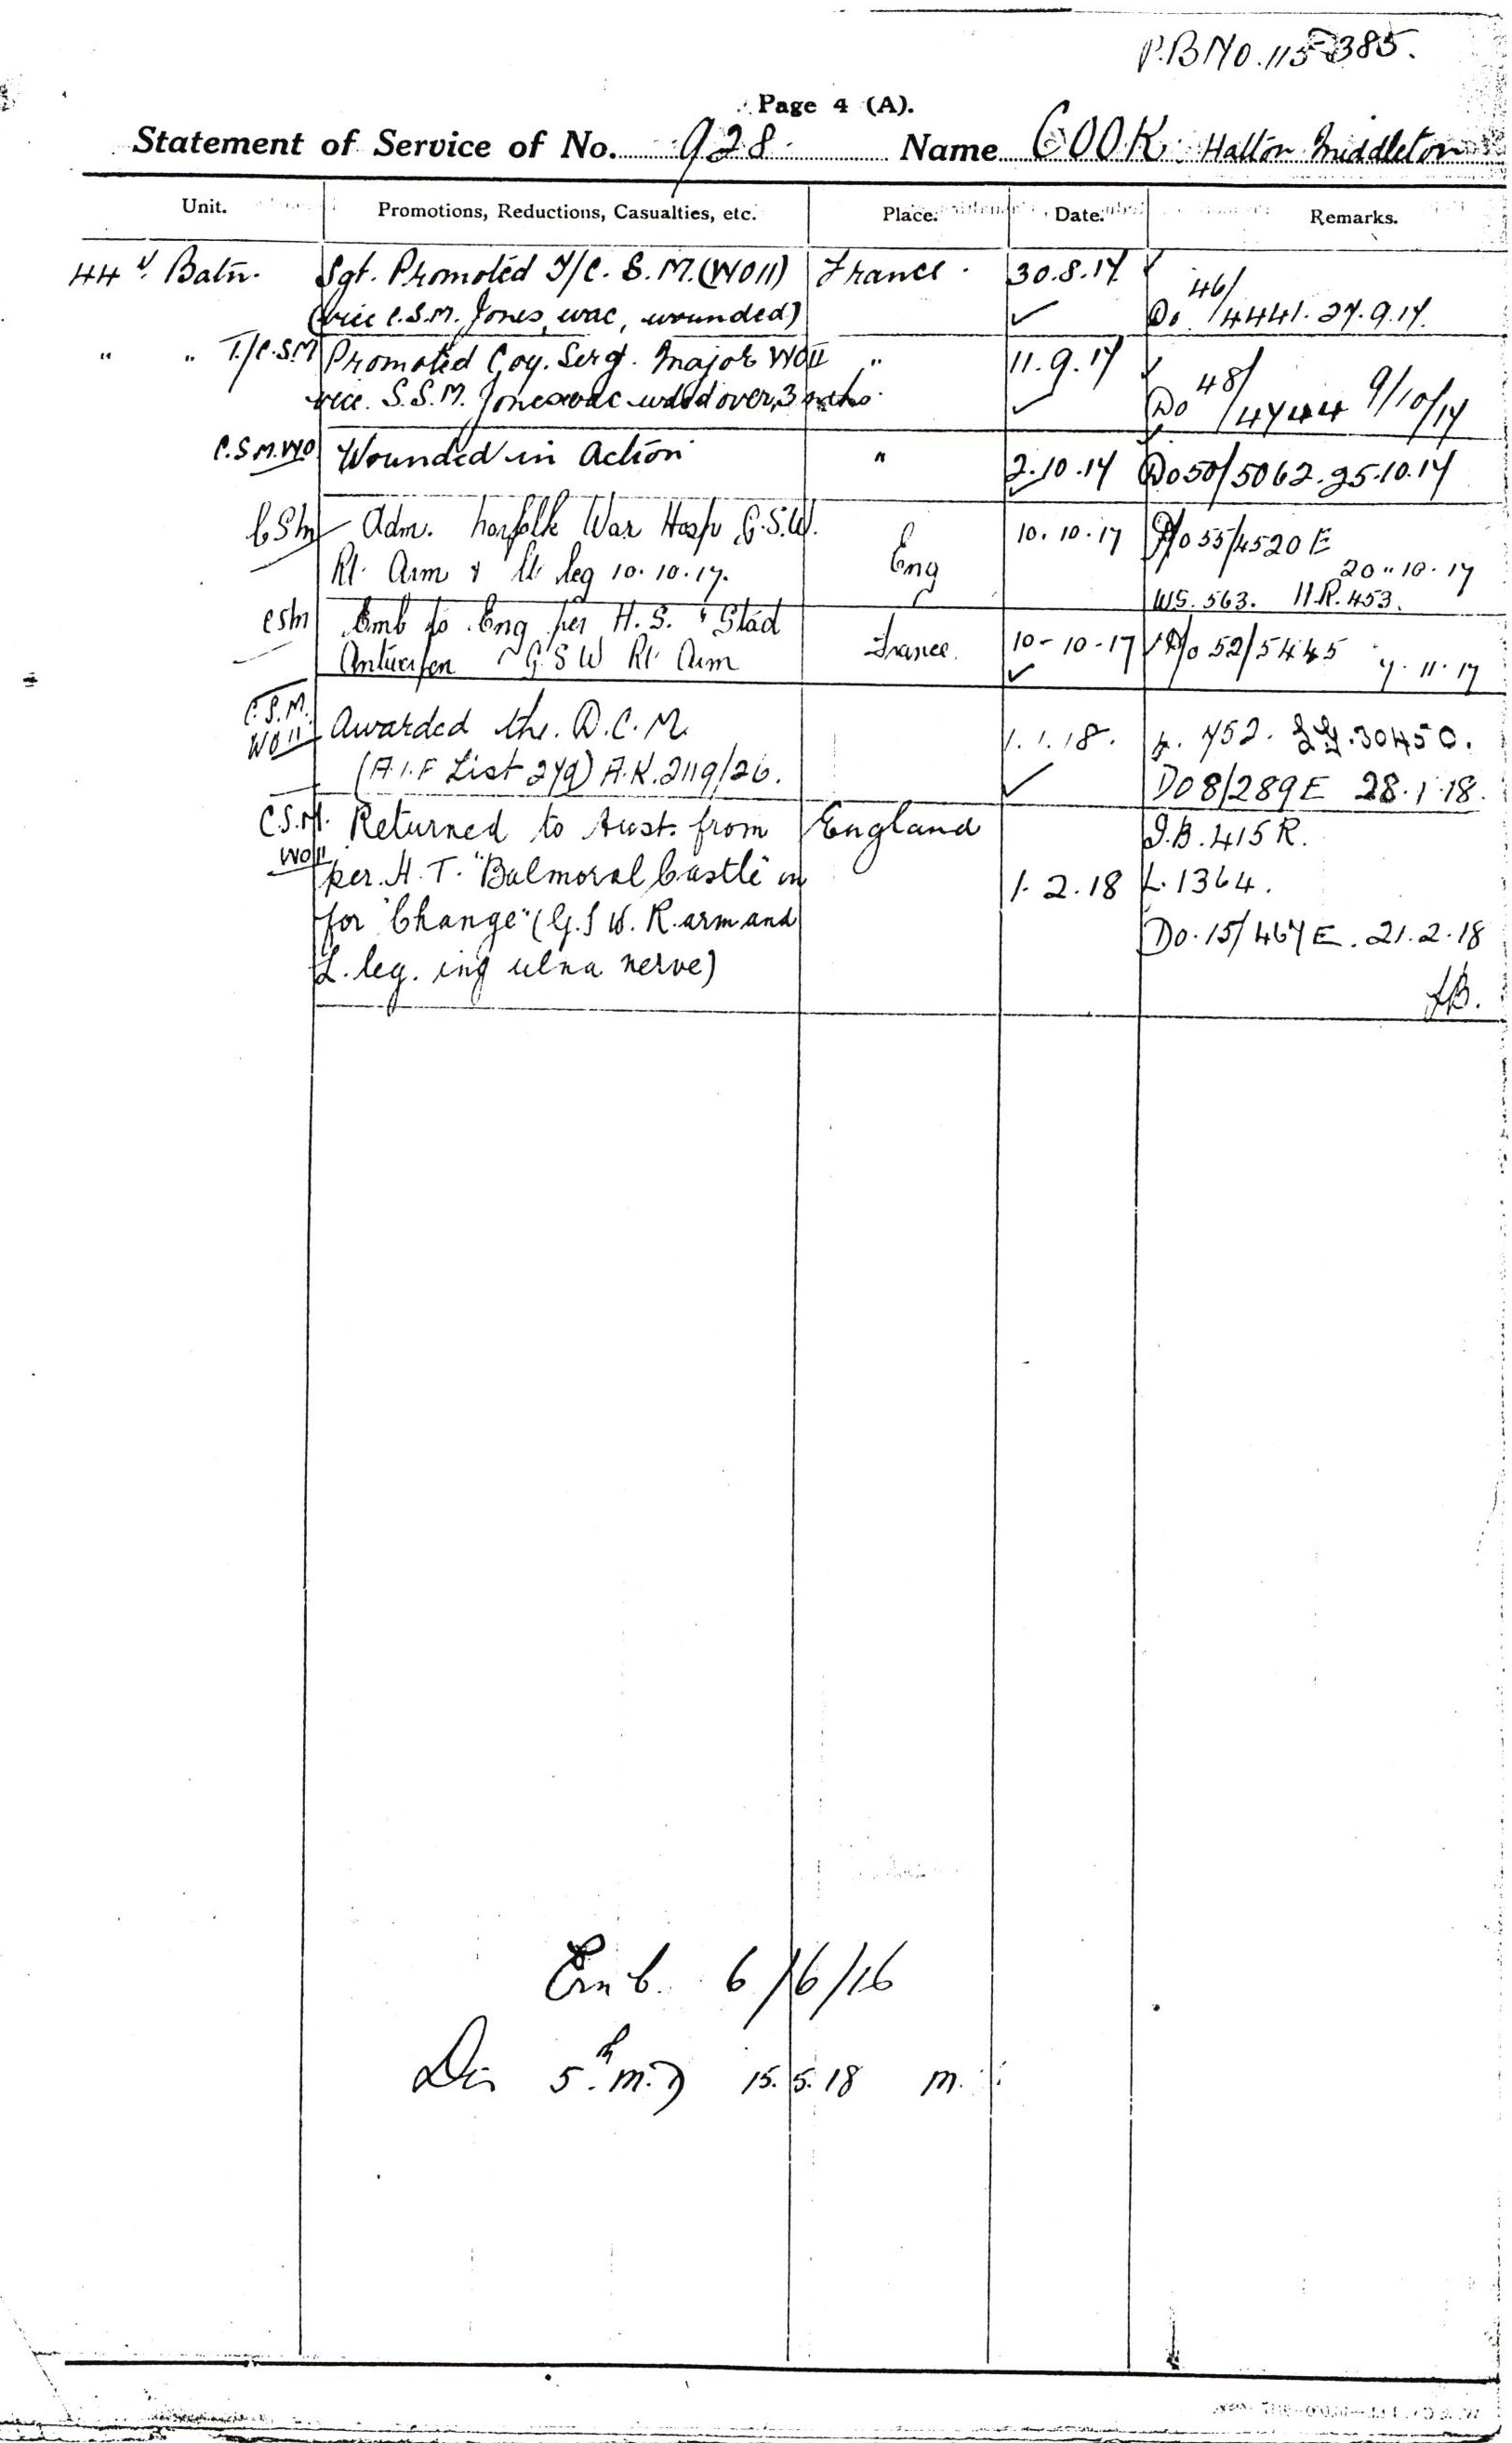 P.B No. 115385.
Page 4 (A).
Statement of Service of No. 928. Name COOK Halton Middleton
Unit. Promotions, Reductions, Casualties, etc. Place. Date. Remarks.
44 Batn. Sgt. Promoted T/C.S.M. (WO11) France. 30.8.17
46/
(vice C.S.M. Jones, wac, wounded) Do /4441. 27.9.17.
" " T./C.S.M Promoted Coy. Sergt. Major WOII " 11.9.17
vice S.S.M. Jones wac wded over 3 mths. Do 48/4744 9/10/17
C.S.M. WO Wounded in Action " 2.10.17 Do 50/5062. 25.10.17
CSM Adm. Norfolk War Hosp G.S.W. 10.10.17 D/o 55/4520 E
Rt. Arm & Lt. leg 10.10.17. Eng 20.10.17
WS. 563. H.R. 453.
CSM Emb to Eng per H.S. "Stad France 10-10-17 D/o 52/5445
Antwerpen G S W Rt. Arm 7.11.17
C.S.M. WO11 Awarded the D.C.M. 1.1.18. p. 752. 30450.
(A.I.F List 279) A.K. 2119/26. DO 8/289E 28.1.18.
C.S.M. Returned to Aust. from England I.B. 415 R.
WO11 per H.T. "Balmoral Castle" on 1.2.18 L. 1364.
for "Change" (G.S W. R. arm and Do. 15/467 E. 21.2.18
L. leg. inj ulna nerve)
Emb. 6/6/16
Dis 5th M.D 15.5.18 M.